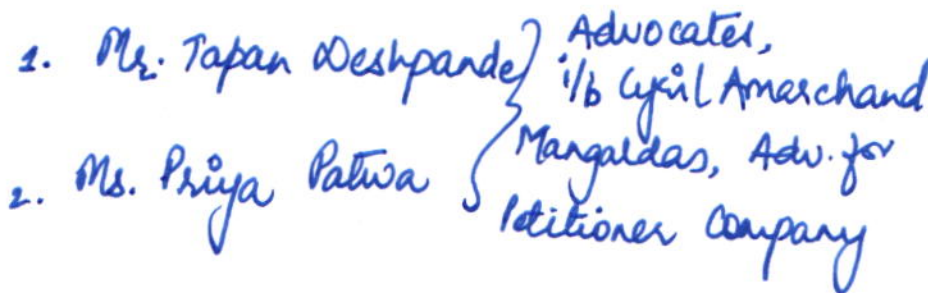 1. Mr. Tapan Deshpande
2. Ms. Priya Patwa
Advocates,
i/b Cyril Amarchand
Mangaldas, Adv. for
Petitioner Company